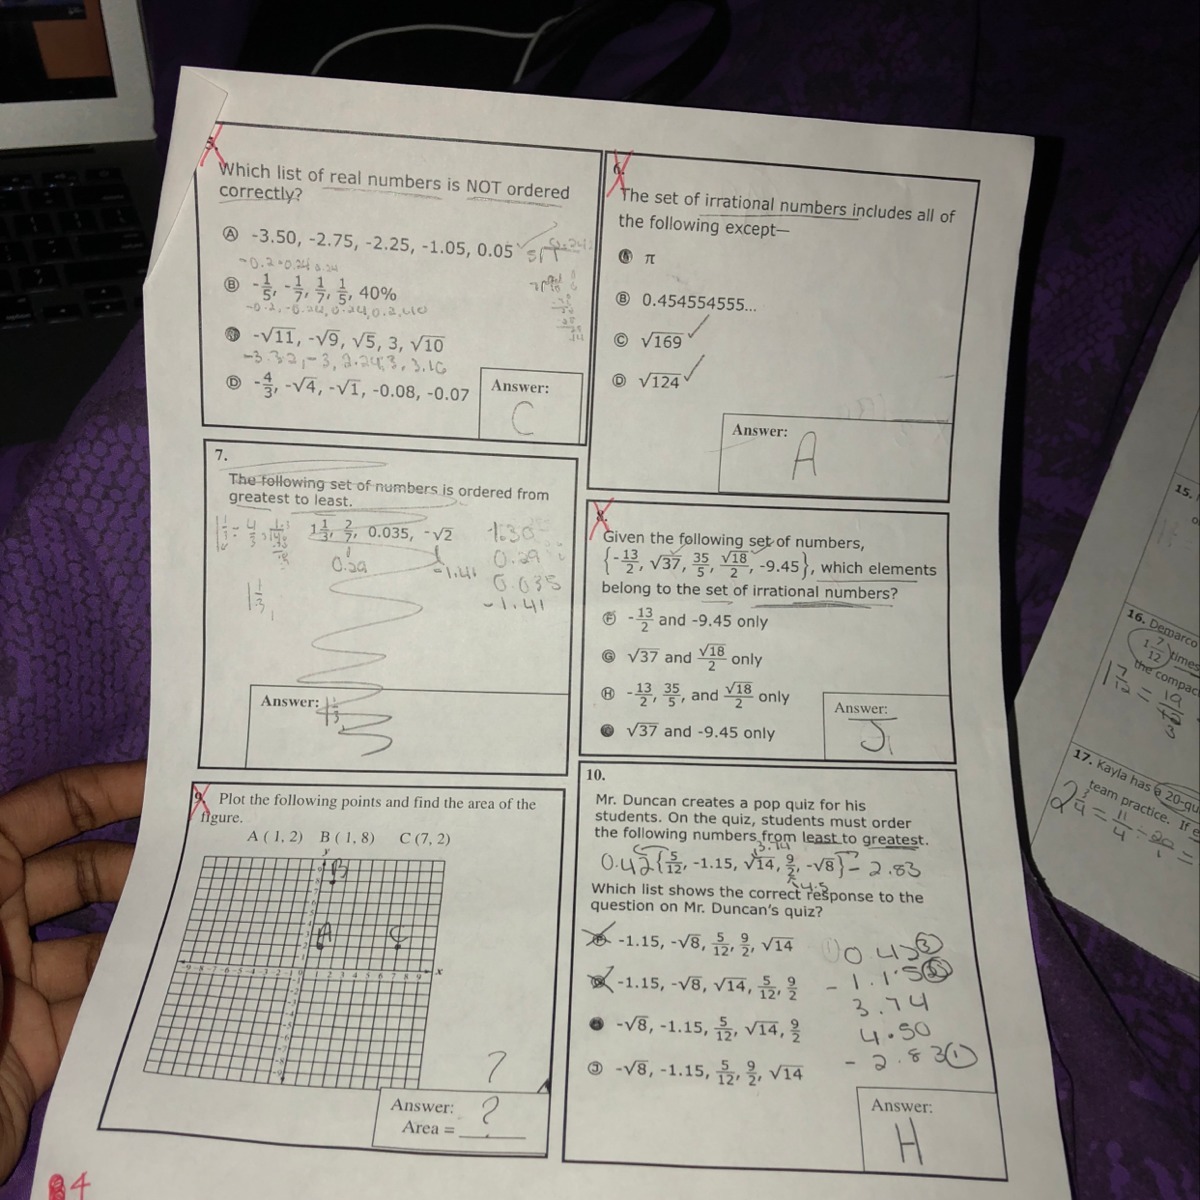 5.
Which list of real numbers is NOT ordered
correctly?
A -3.50, -2.75, -2.25, -1.05, 0.05
B -1/5, -1/7, 1/7, 1/5, 40%
-0.2, -0.24, 0.24, 0.2, 40
-√11, -√9, √5, 3, √10
-3.32, -3, 2.24, 3, 3.16
D -4/3, -√4, -√1, -0.08, -0.07
Answer:
C
6.
The set of irrational numbers includes all of
the following except—
π
B 0.454554555...
C √169
D √124
Answer:
A
7.
The following set of numbers is ordered from
greatest to least.
1 1/3, 2/7, 0.035, -√2
0.29
-1.41
1.30
0.29
0.035
-1.41
1 1/3,
Answer: 1 1/3,
8.
Given the following set of numbers,
{-13/2, √37, 35/5, √18/2, -9.45}, which elements
belong to the set of irrational numbers?
F -13/2 and -9.45 only
G √37 and √18/2 only
H -13/2, 35/5, and √18/2 only
√37 and -9.45 only
Answer:
J
9. Plot the following points and find the area of the
figure.
A ( 1, 2) B ( 1, 8) C (7, 2)
y
B
A
C
x
?
Answer: ?
Area =
10.
Mr. Duncan creates a pop quiz for his
students. On the quiz, students must order
the following numbers from least to greatest.
3.74
0.42 {5/12, -1.15, √14, 9/2, -√8} - 2.83
4.5
Which list shows the correct response to the
question on Mr. Duncan's quiz?
-1.15, -√8, 5/12, 9/2, √14
-1.15, -√8, √14, 5/12, 9/2
-√8, -1.15, 5/12, √14, 9/2
J -√8, -1.15, 5/12, 9/2, √14
0.42 3
- 1.15 2
3.74
4.50
- 2.83 1
Answer:
H
4
15.
16. Demarco
1 7/12 times
the compac
1 7/12 = 19/12
17. Kayla has a 20-qu
team practice. If
2 3/4 = 11/4 ÷ 20/1 =